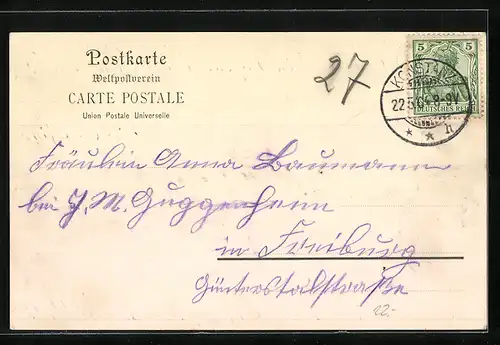 Postkarte
Weltpostverein
CARTE POSTALE
Union Postale Universelle
27
5 5
DEUTSCHES REICH
KONSTANZ
22.5.
* * h
Fräulein Anna Baumann
bei J. M. Guggenheim
in Freiburg
Günterstalstraße
22.-